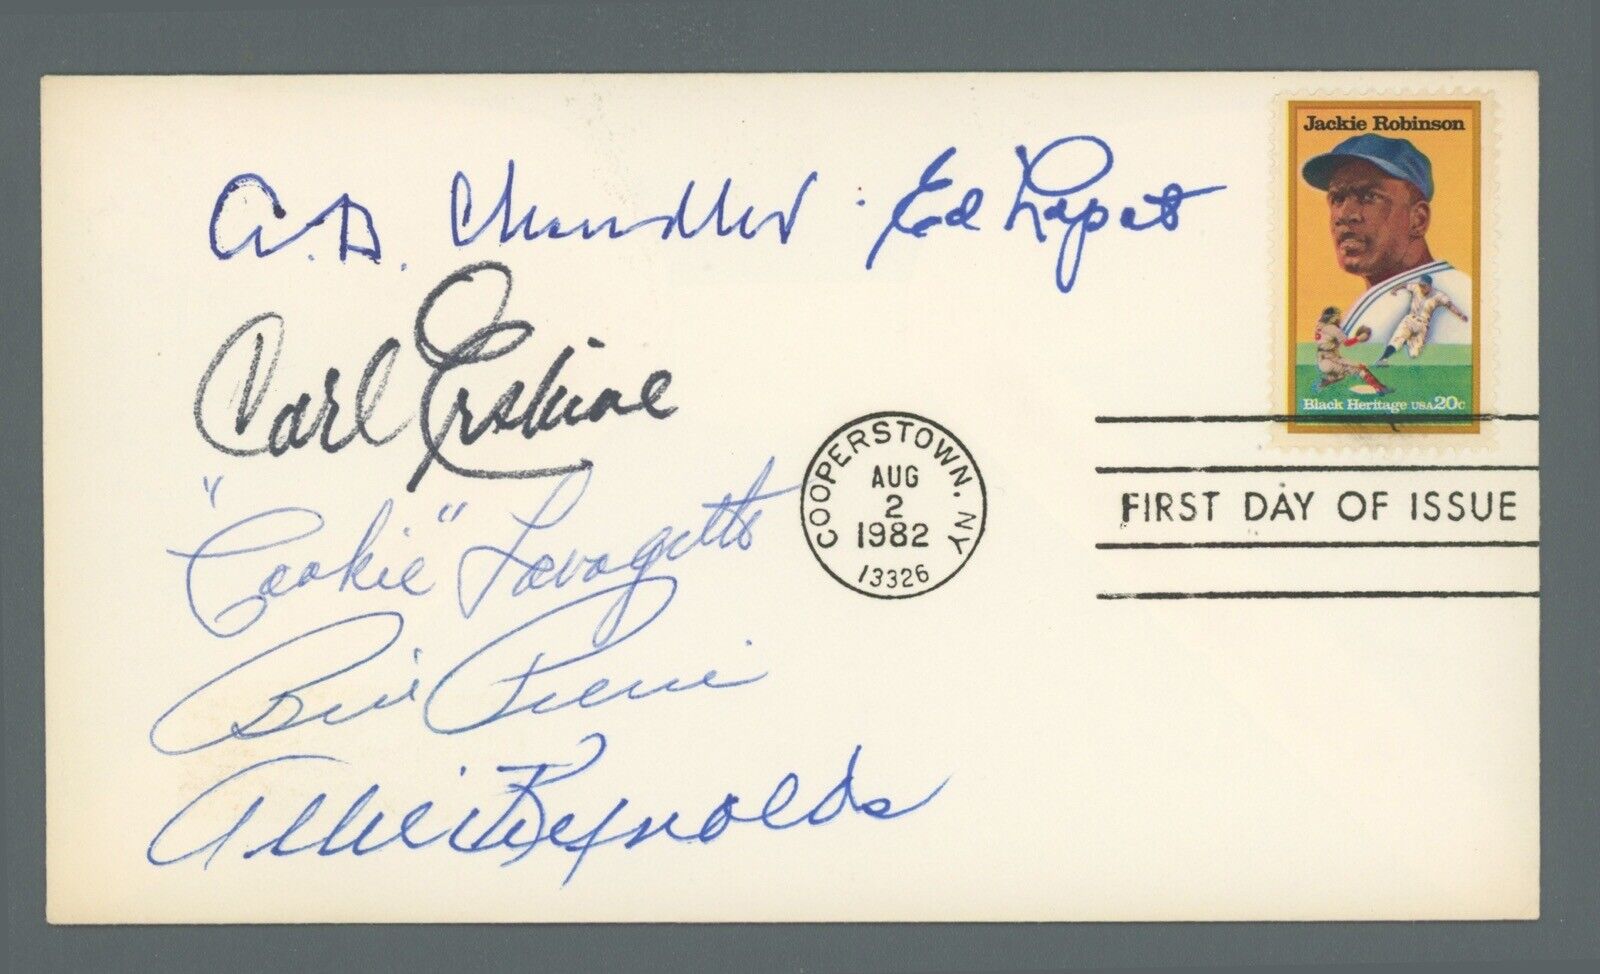 Jackie Robinson
A.B. Chandler Ed Lopat
Carl Erskine
Black Heritage USA 20c
"Cookie" Lavagetto
COOPERSTOWN, NY
AUG
2
1982
13326
FIRST DAY OF ISSUE
Allie Reynolds